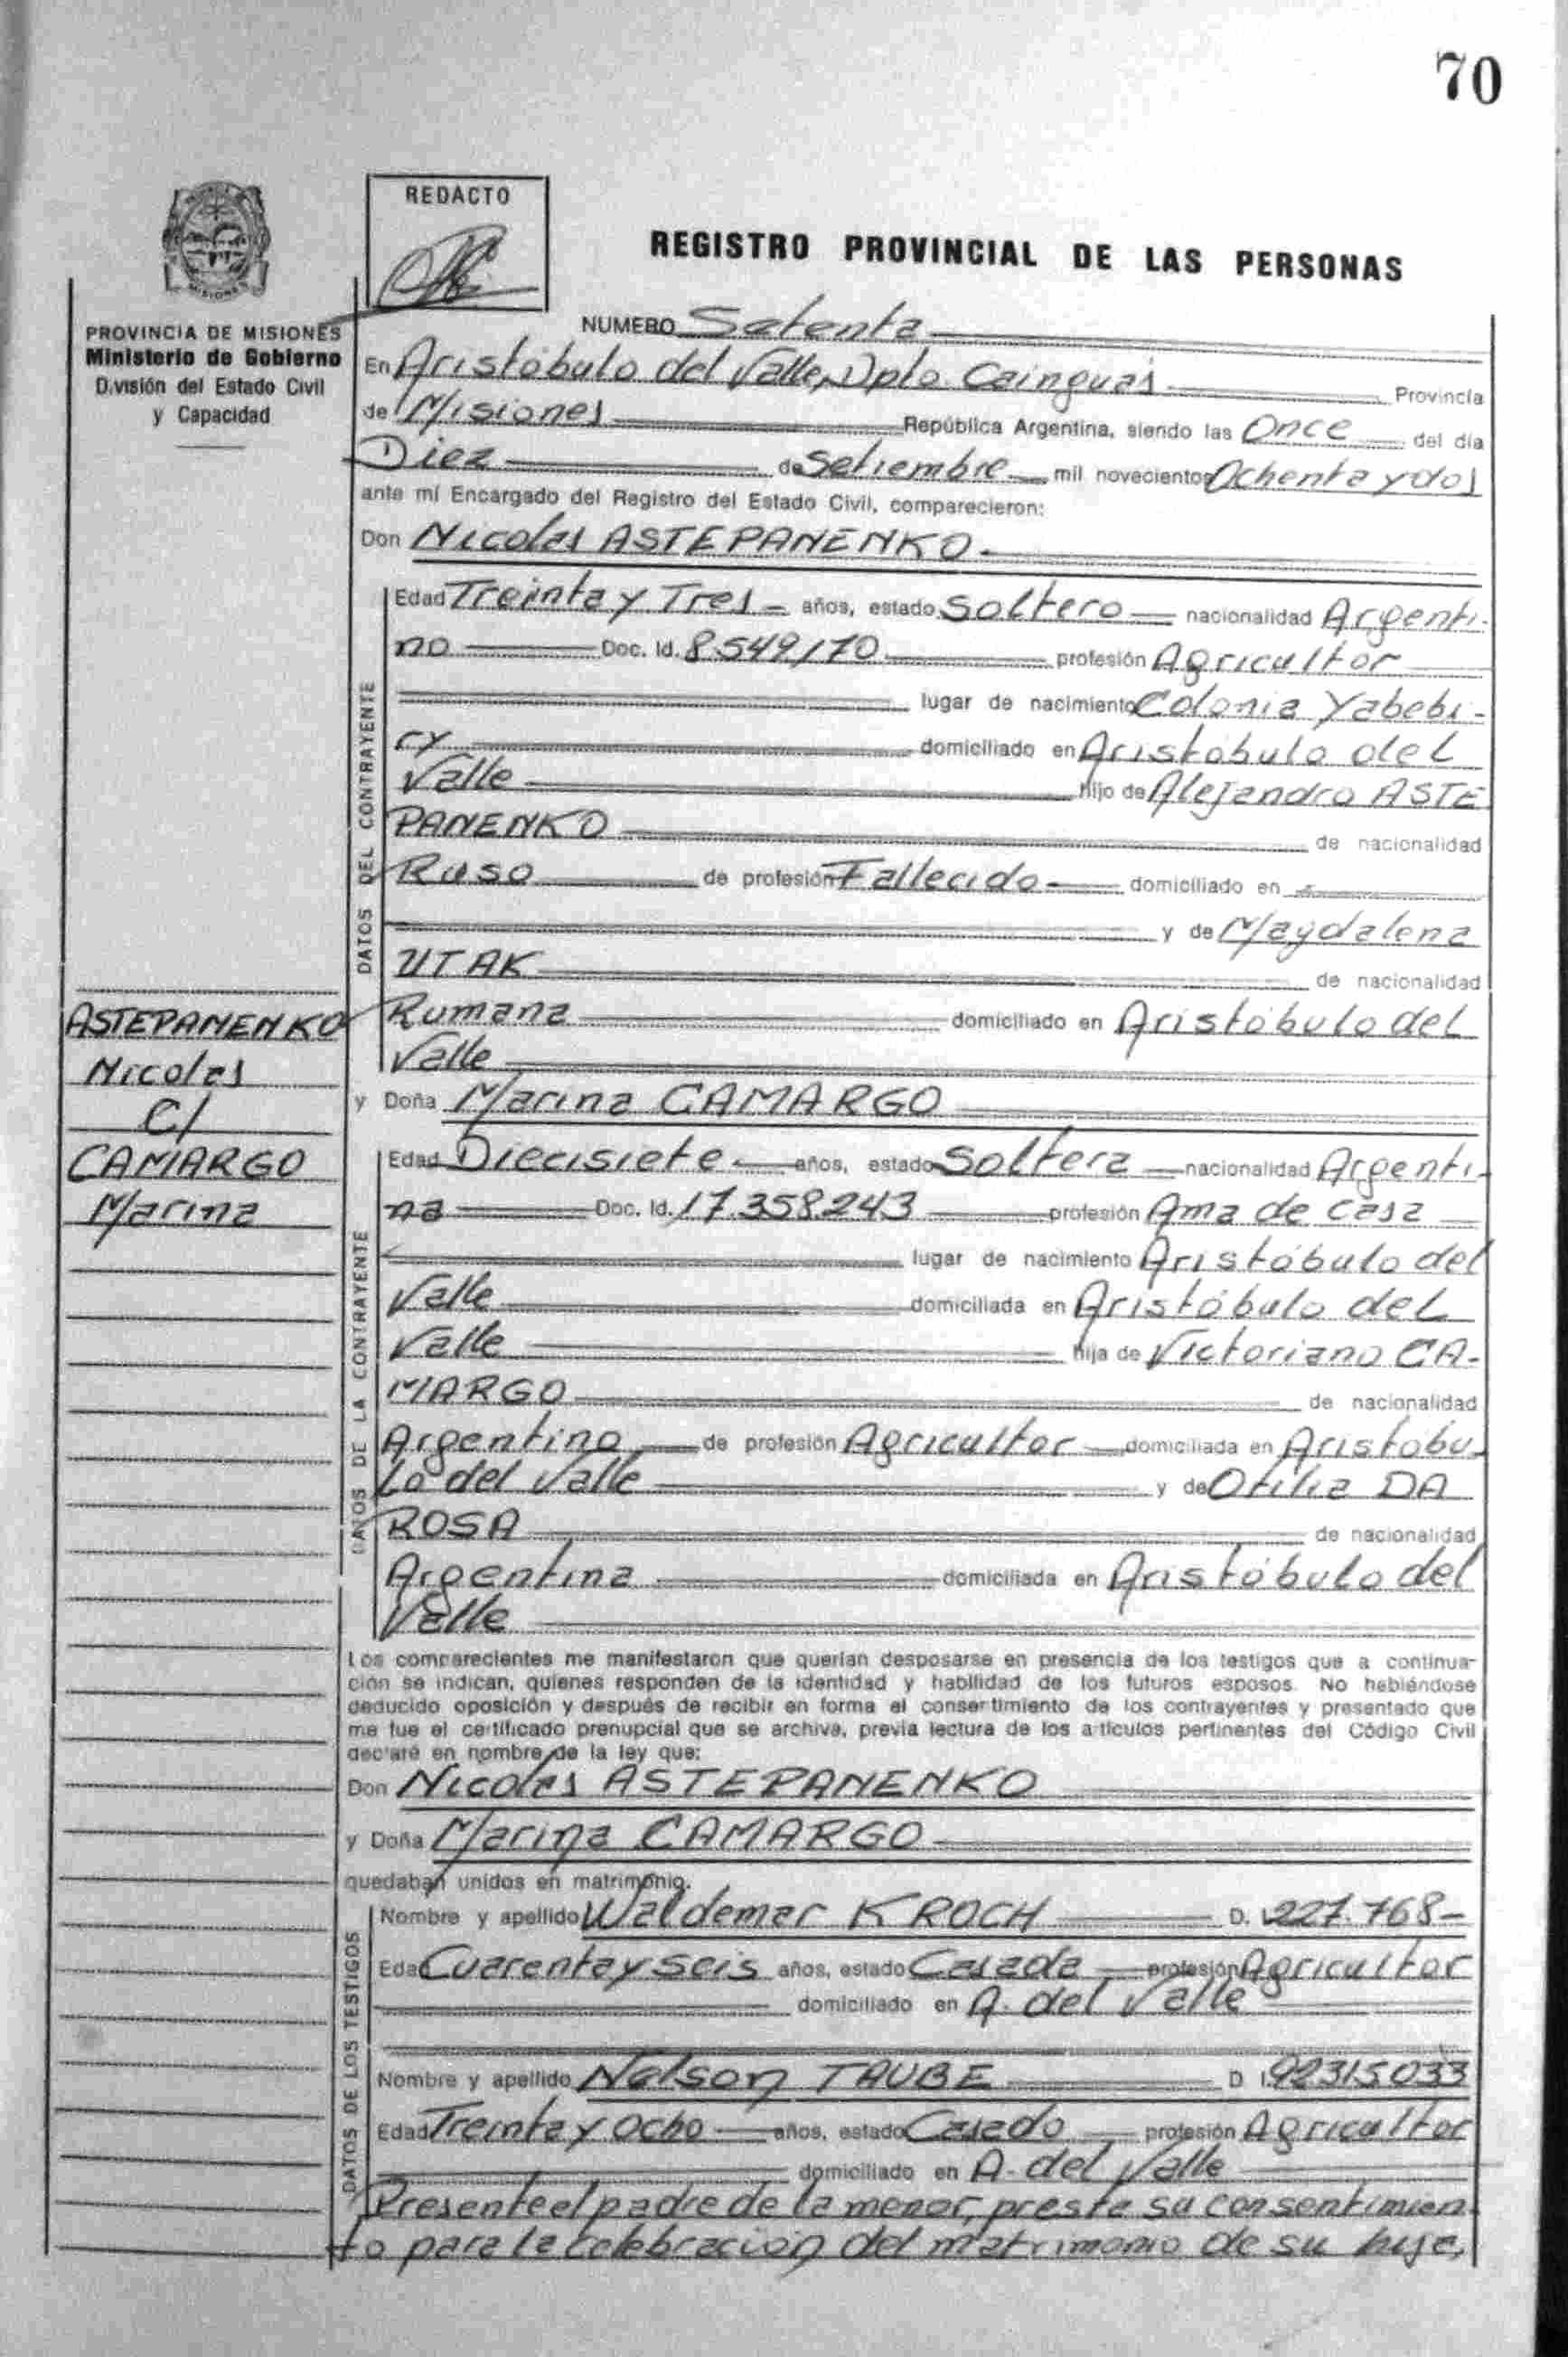 70
REDACTO
REGISTRO PROVINCIAL DE LAS PERSONAS
MISIONES
PROVINCIA DE MISIONES
Ministerio de Gobierno
División del Estado Civil
y Capacidad
NUMERO Setenta
En Aristóbulo del Valle, Dpto. Cainguás Provincia
de Misiones República Argentina, siendo las Once del día
Diez de Setiembre mil novecientos Ochenta y dos
ante mí Encargado del Registro del Estado Civil, comparecieron:
Don Nicolas ASTEPANENKO.
DATOS DEL CONTRAYENTE
Edad Treinta y Tres años, estado Soltero nacionalidad Argenti-
no Doc. Id. 8.549.170 profesión Agricultor
lugar de nacimiento Colonia Yabebi-
ry domiciliado en Aristóbulo del
Valle hijo de Alejandro ASTE
PANENKO de nacionalidad
Ruso de profesión Fallecido domiciliado en
y de Magdalena
UTAK de nacionalidad
Rumana domiciliado en Aristóbulo del
Valle
ASTEPANENKO
Nicolas
C/
CAMARGO
Marina
y Doña Marina CAMARGO
DATOS DE LA CONTRAYENTE
Edad Diecisiete años, estado Soltera nacionalidad Argenti-
na Doc. Id. 17.358.243 profesión Ama de casa
lugar de nacimiento Aristóbulo del
Valle domiciliada en Aristóbulo del
Valle hija de Victoriano CA-
MARGO de nacionalidad
Argentino de profesión Agricultor domiciliada en Aristóbu-
lo del Valle y de Otilia DA
ROSA de nacionalidad
Argentina domiciliada en Aristóbulo del
Valle
Los comparecientes me manifestaron que querían desposarse en presencia de los testigos que a continua-
ción se indican, quienes responden de la identidad y habilidad de los futuros esposos. No habiéndose
deducido oposición y después de recibir en forma el consertimiento de los contrayentes y presentado que
me fue el certificado prenupcial que se archiva, previa lectura de los artículos pertinentes del Código Civil
declaré en nombre de la ley que:
Don Nicolas ASTEPANENKO
y Doña Marina CAMARGO
quedaban unidos en matrimonio.
DATOS DE LOS TESTIGOS
Nombre y apellido Waldemar KROCH D. I. 227.768-
Edad Cuarenta y seis años, estado Casada profesión Agricultor
domiciliado en A. del Valle
Nombre y apellido Nelson TAUBE D I. 92315033
Edad Treinta y Ocho años, estado Casado profesión Agricultor
domiciliado en A. del Valle
Presente el padre de la menor, presta su consentimien
to para la celebración del matrimonio de su hija,